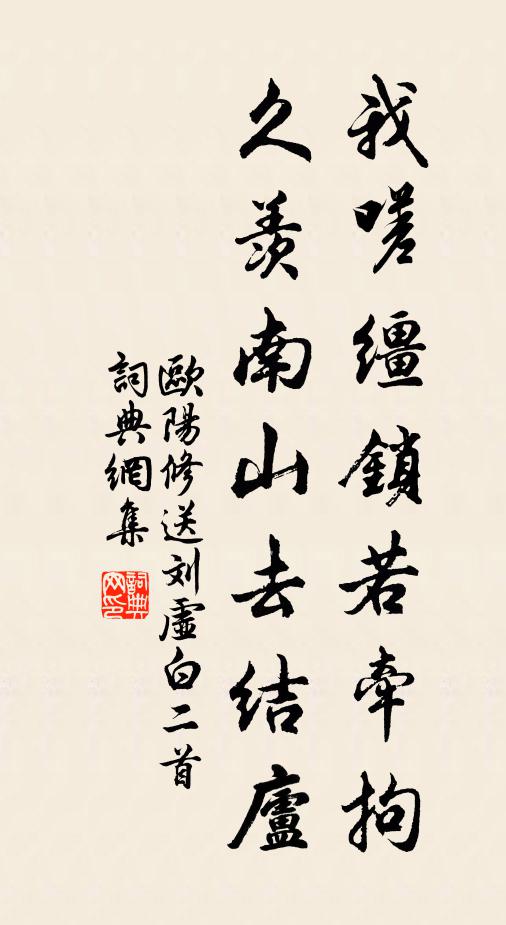 我嗟纆鎖若牽拘
久羨南山去結廬
歐陽修送刘虛白二首
詞典網集
詞典网印